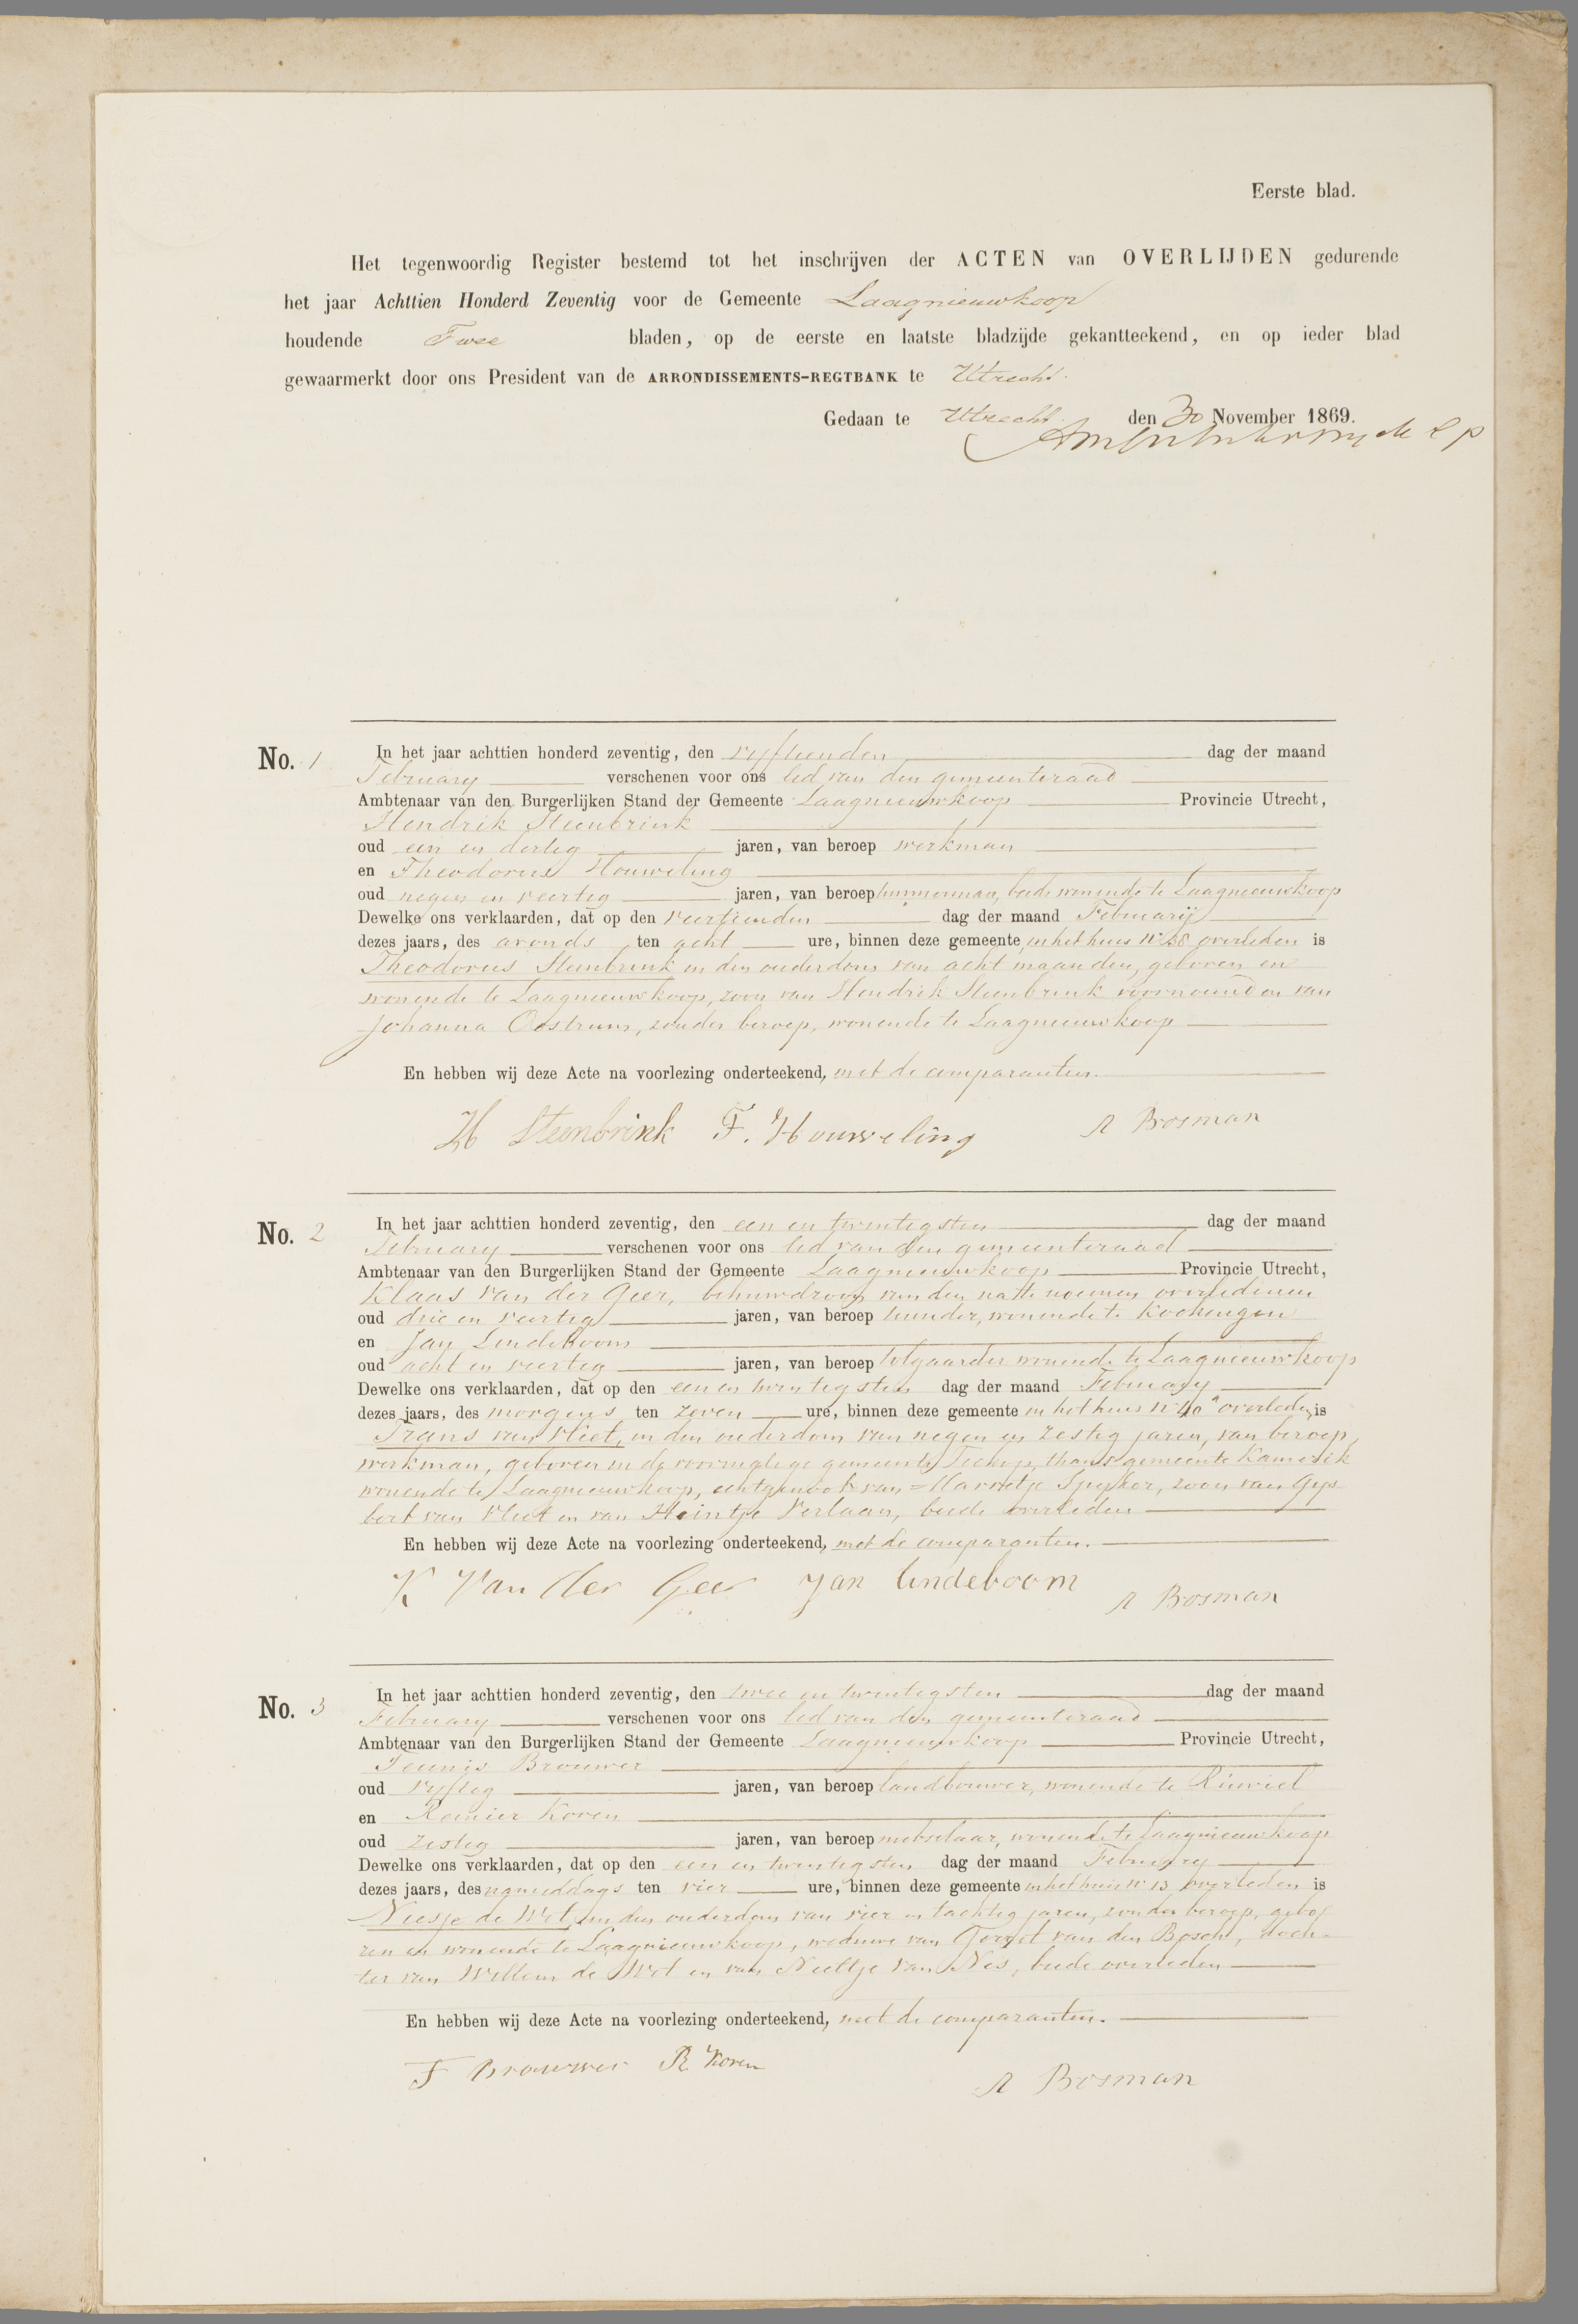 Eerste blad.
Het tegenwoordig Register bestemd tot het inschrijven der ACTEN van OVERLIJDEN gedurende
het jaar Achttien Honderd Zeventig voor de Gemeente Laagnieuwkoop
houdende Twee bladen, op de eerste en laatste bladzijde gekantteekend, en op ieder blad
gewaarmerkt door ons President van de ARRONDISSEMENTS-REGTBANK te Utrecht.
Gedaan te Utrecht den 30 November 1869.
No. 1 In het jaar achttien honderd zeventig, den vyftienden dag der maand
February verschenen voor ons lid van den gemeenteraad
Ambtenaar van den Burgerlijken Stand der Gemeente Laagnieuwkoop Provincie Utrecht,
Hendrik Steenbrink
oud een en dertig jaren, van beroep werkman
en Theodorus Houweling
oud negen en veertig jaren, van beroep timmerman, beide wonende te Laagnieuwkoop
Dewelke ons verklaarden, dat op den veertienden dag der maand Februarij
dezes jaars, des avonds ten acht ure, binnen deze gemeente, in het huis No 38 overleden is
Theodorus Steenbrink in den ouderdom van acht maanden, geboren en
wonende te Laagnieuwkoop, zoon van Hendrik Steenbrink voornoemd en van
Johanna Oostrum, zonder beroep, wonende te Laagnieuwkoop
En hebben wij deze Acte na voorlezing onderteekend, met de comparanten.
H Steenbrink T. Houweling A Bosman
No. 2 In het jaar achttien honderd zeventig, den een en twintigsten dag der maand
February verschenen voor ons lid van den gemeenteraad
Ambtenaar van den Burgerlijken Stand der Gemeente Laagnieuwkoop Provincie Utrecht,
Klaas van der Geer, behuwdzoon van den na te noemen overledenen
oud drie en veertig jaren, van beroep wonende te Kockengen
en Jan Lindeboom
oud acht en veertig jaren, van beroep tolgaarder wonende te Laagnieuwkoop
Dewelke ons verklaarden, dat op den een en twintigsten dag der maand February
dezes jaars, des morgens ten zeven ure, binnen deze gemeente in het huis No 40a overleden is
Frans van Vliet, in den ouderdom van negen en zestig jaren, van beroep
werkman, geboren in de voormalige gemeente Teckop, thans gemeente Kamerik
wonende te Laagnieuwkoop, echtgenoot van Marretje Spyker, zoon van Gys
bert van Vliet en van Heintje Verlaan, beide overleden
En hebben wij deze Acte na voorlezing onderteekend, met de comparanten.
K Van der Geer Jan Lindeboom A Bosman
No. 3 In het jaar achttien honderd zeventig, den twee en twintigsten dag der maand
February verschenen voor ons lid van den gemeenteraad
Ambtenaar van den Burgerlijken Stand der Gemeente Laagnieuwkoop Provincie Utrecht,
Teunis Brouwer
oud vyftig jaren, van beroep landbouwer, wonende te
en Reinier Koren
oud zestig jaren, van beroep metselaar, wonende te Laagnieuwkoop
Dewelke ons verklaarden, dat op den een en twintigsten dag der maand February
dezes jaars, des namiddags ten vier ure, binnen deze gemeente in het huis No 13 overleden is
Niesje de Wit, in den ouderdom van vier en tachtig jaren, zonder beroep, gebo
ren en wonende te Laagnieuwkoop, weduwe van Gerrit van den Bosch, doch-
ter van Willem de Wit en van Neeltje van Nes, beide overleden
En hebben wij deze Acte na voorlezing onderteekend, met de comparanten.
T Brouwer R Koren
A Bosman